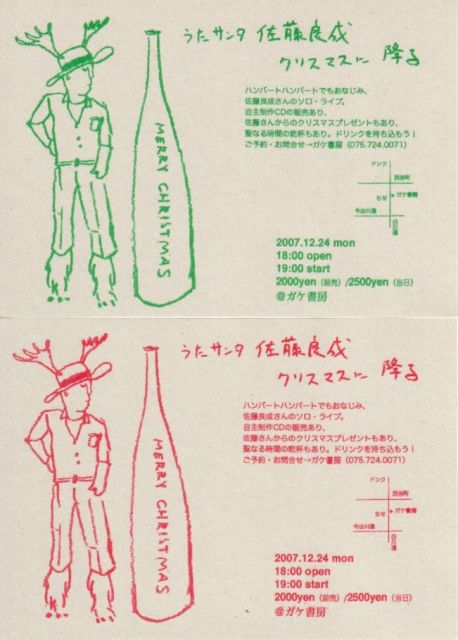 うたサンタ 佐藤良成
クリスマスに 降る
ハンバートハンバートでもおなじみ、
佐藤良成さんのソロ・ライブ。
自主制作CDの販売あり、
佐藤さんからのクリスマスプレゼントもあり、
聖なる時間の乾杯もあり。ドリンクを持ち込もう！
ご予約・お問合せ→ガケ書房（075.724.0071）
MERRY CHRISTMAS
ドンク
別当町
ガケ書房
今出川通
白川通
2007.12.24 mon
18:00 open
19:00 start
2000yen（前売）/2500yen（当日）
@ガケ書房
うたサンタ 佐藤良成
クリスマスに 降る
ハンバートハンバートでもおなじみ、
佐藤良成さんのソロ・ライブ。
自主制作CDの販売あり、
佐藤さんからのクリスマスプレゼントもあり、
聖なる時間の乾杯もあり。ドリンクを持ち込もう！
ご予約・お問合せ→ガケ書房（075.724.0071）
MERRY CHRISTMAS
ドンク
別当町
ガケ書房
今出川通
白川通
2007.12.24 mon
18:00 open
19:00 start
2000yen（前売）/2500yen（当日）
@ガケ書房